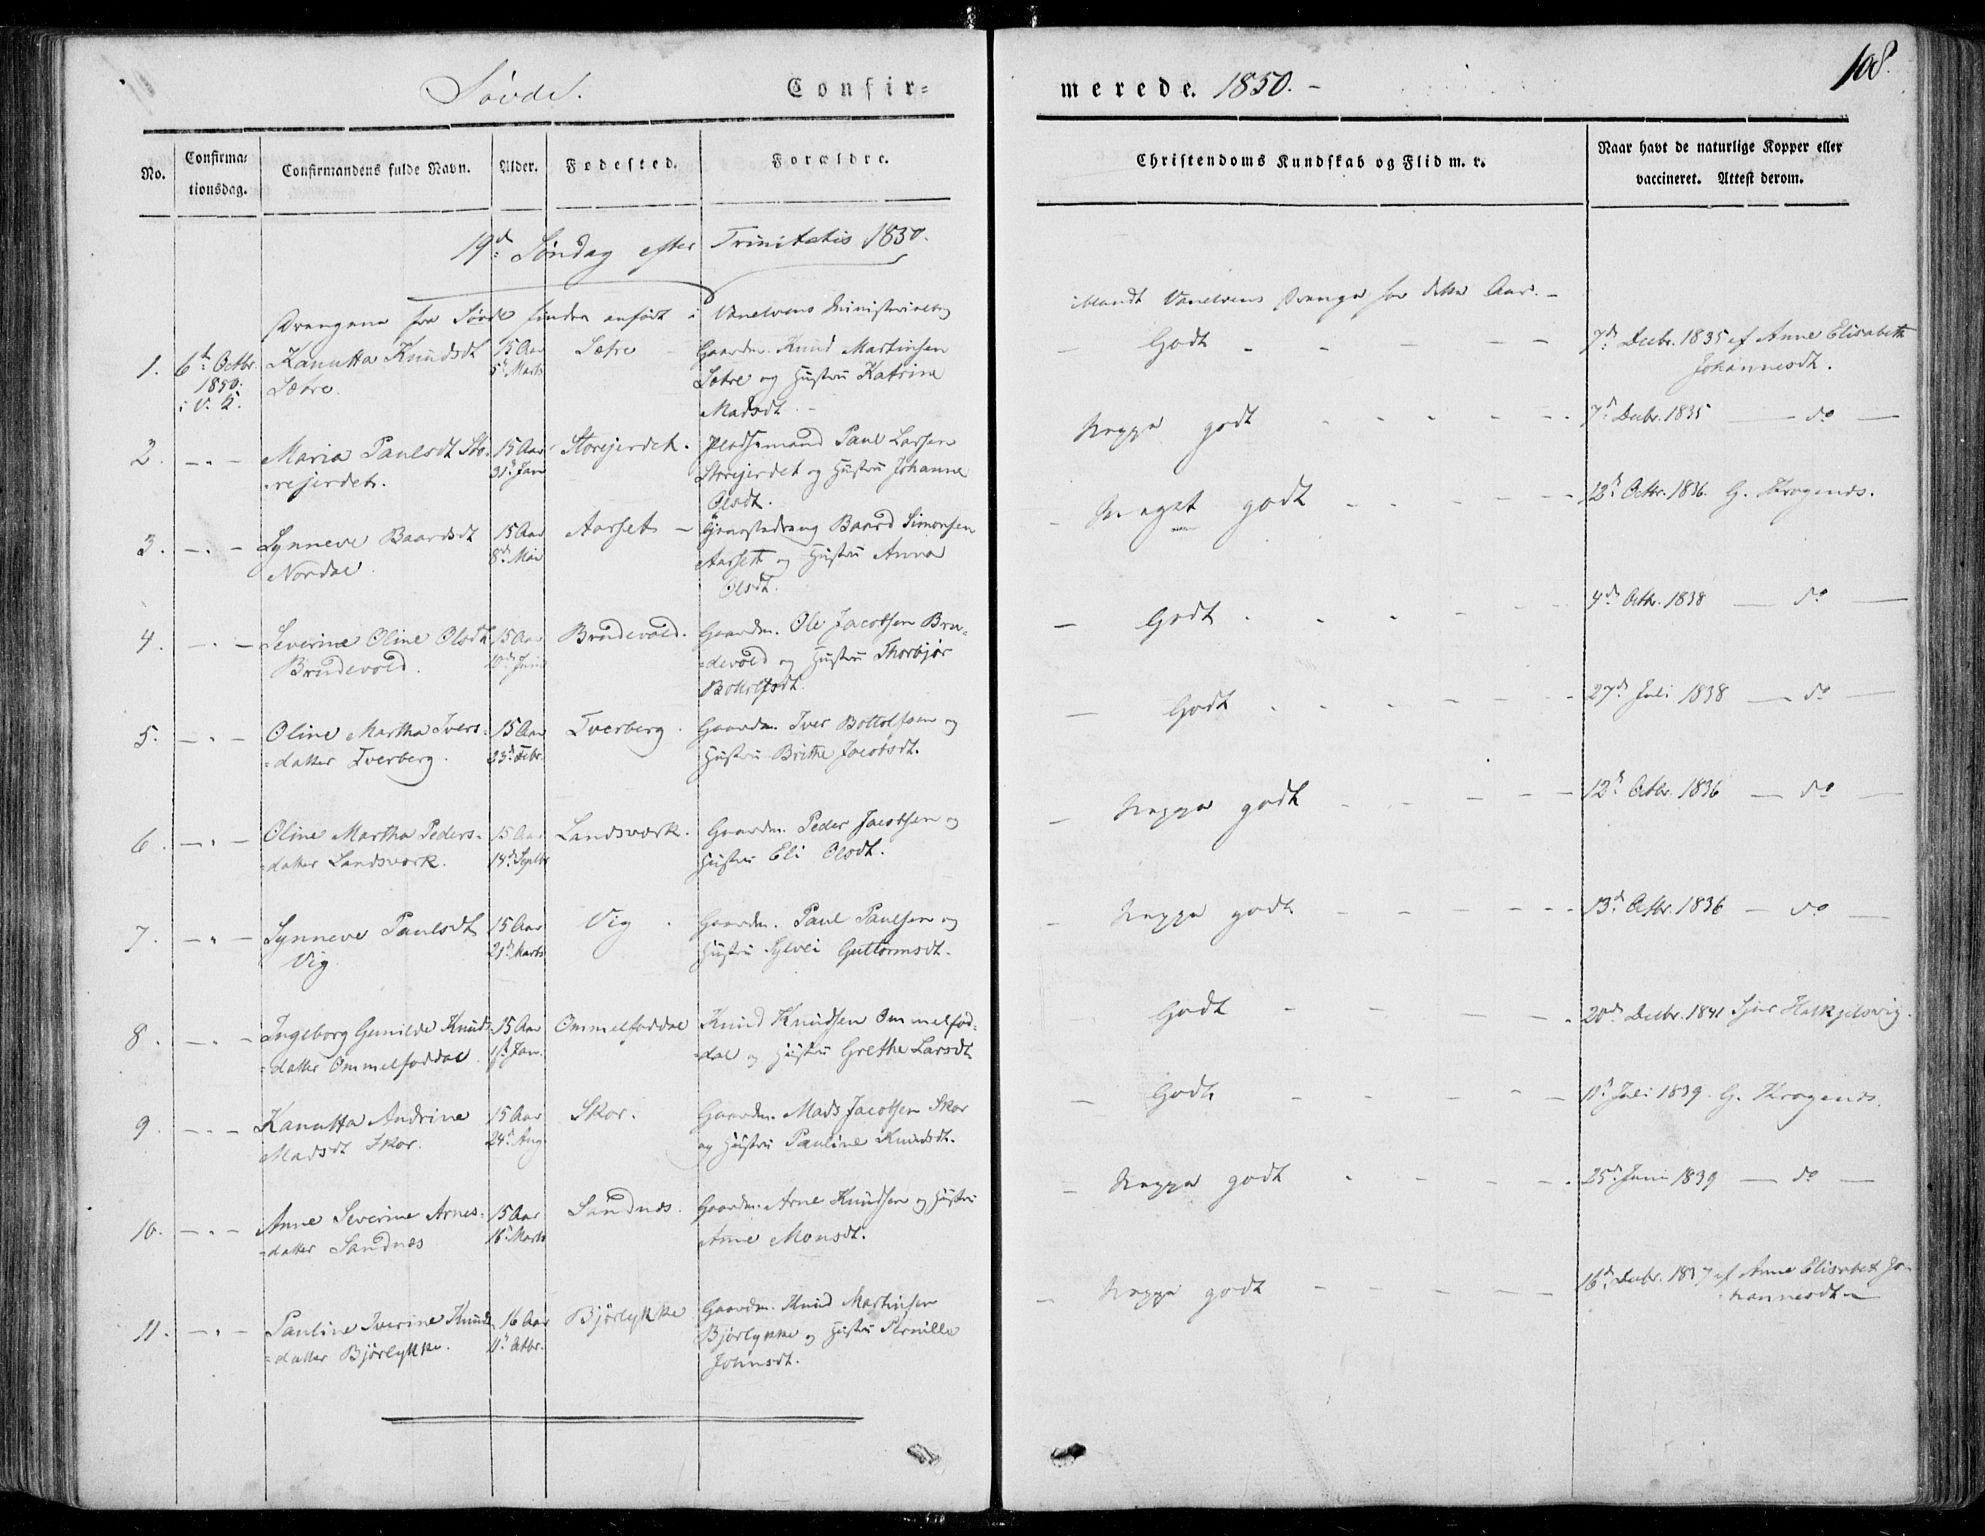 Søvde.
Confir=
merede. 1850. –
108.
No.
Confirma=
tionsdag.
Confirmandens fulde Navn.
Alder.
Fødested.
Forældre.
Christendoms Kundskab og Flid m. r.
Naar havt de naturlige Kopper eller
vaccineret. Attest derom.
19d. Søndag efter Trinitatis 1850.
Drengene fra Søvde findes anført i Vanelvens Ministerialbog
iblandt Vanelvens Drenge for dette Aar. –
1. 6te Octbr. 1850. i V. K.
Kanutta Knudsdt
Sætre.
15 Aar
5d. Marts
Sætre
Gaardm. Knud Martinsen
Sætre og Hustru Katrine
Madsdt. –
– Godt – – – –
7de Decbr. 1835 af Anne Elisabeth
Johannesdt.
2. – " –
Maria Paulsdt Sto-
rejerdet.
15 Aar
31d. Jan
Storejerdet.
Pladsmand Paul Larsen
Storejerdet og Hustru Johanne
Olsdt.
Neppe godt – – – –
7d. Decbr. 1835 — do —
3. – " –
Synneve Baardsdt
Nordal
15 Aar
8d. Mai
Aarset –
Baard Simonsen
Aarseth og Hustru Anna
Olsdt.
– Meget godt – – – –
12d. Octbr. 1836. G. Krogenæs.
4. – " –
Severine Oline Olsdt
Brudevold.
15 Aar
10de Juni
Brudevold.
Gaardm. Ole Jacobsen Bru-
=devold og Hustru Thorbjør
Bottolfsdt.
– Godt – – – –
4de Octbr. 1838 — do —
5. – " –
Oline Martha Ivers-
=datter Tverberg.
15 Aar
23d. Febr.
Tverberg.
Gaardm. Iver Bottolfsen og
Hustru Brithe Jacobsdt.
– Godt – – – –
27de Juli 1838 — do —
6. – " –
Oline Martha Peders-
=datter Landsværk.
15 Aar
14d. Septbr
Landsværk.
Gaardm. Peder Jacobsen og
Hustru Eli Olsdt.
– Neppe godt – – – –
12d. Octbr. 1836 — do —
7. – " –
Synneve Paulsdt
Vig
15 Aar
21d. Marts
Vig
Gaardm. Paul Paulsen og
Hustru Sylvei Guttormsdt.
– Neppe godt – – – –
13d. Octbr. 1836 — do —
8. – " –
Ingeborg Gunilde Knuds-
=datter Ommelfoddal
15 Aar
Jan.
Ommelfoddal
Knud Knudsen Ommelfod-
=dal og Hustru Grethe Larsdt
Godt – – – –
20de Decbr. 1841 Sjur Hakjelsvig.
9. – " –
Kanutta Andrine
Madsdt Skor.
15 Aar
24d. Aug
Skor.
Gaardm. Mads Jacobsen Skor
og Hustru Pauline Knudsdt.
– Godt – – – –
11d. Juli 1839. G. Krogenæs.
10. – " –
Anne Severine Arnes-
=datter Sandnæs
15 Aar
16d. Marts
Sandnæs.
Gaardm. Arne Knudsen og Hustru
Ane Monsdt.
– Neppe godt – – – –
25d. Juni 1839 — do —
11. – " –
Pauline Iverine Knuds-
=datter Bjørlykke.
16 Aar
11d. Octbr.
Bjørlykke
Gaardm. Knud Martinsen
Bjørlykke og Hustru Pernille
Johnsdt.
– Neppe godt – – – –
16d. Decbr. 1837 af Anne Elisabet Jo-
hannesdt –